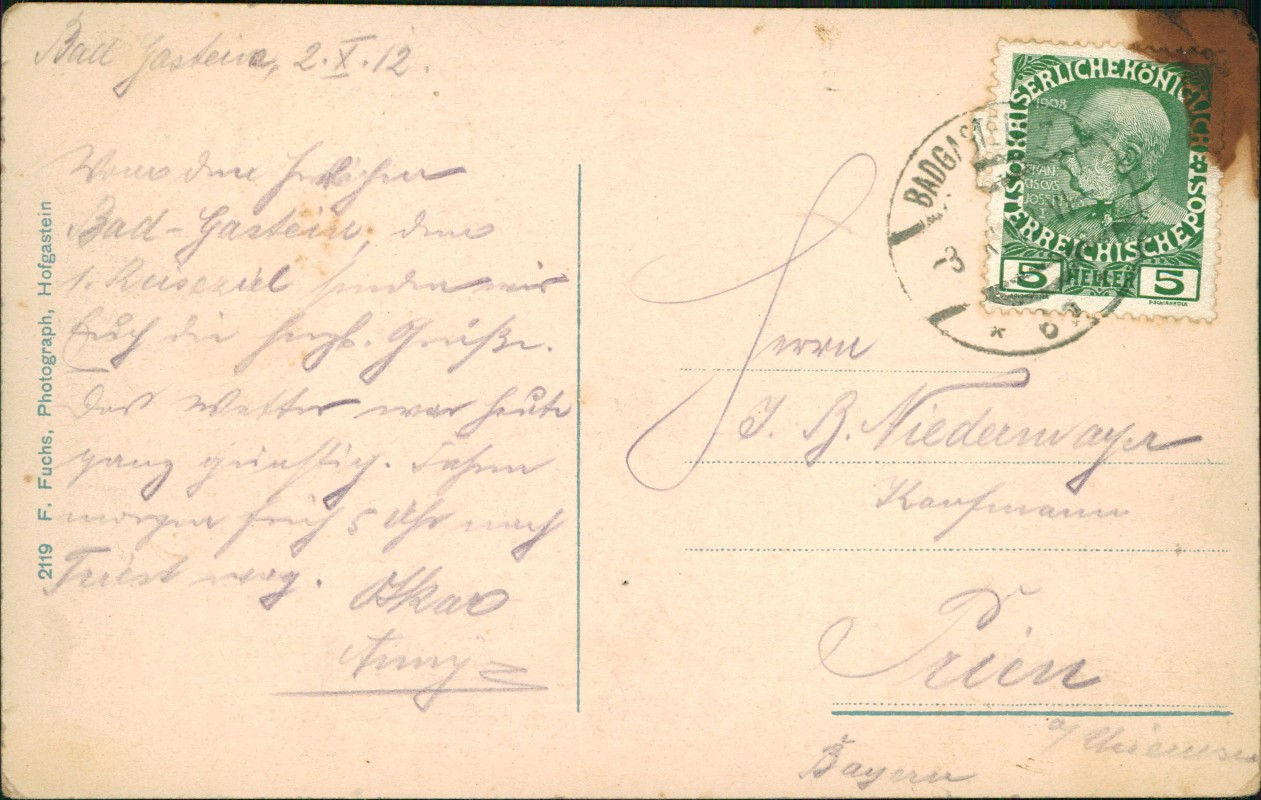 Bad Gastein, 2.X.12.
Vom dem herrlichen
Bad-Gastein, dem
1. Reiseziel senden wir
Euch die herzl. Grüße.
Das Wetter war heute
ganz günstig. Fahren
morgen früh 5 Uhr nach
Triest weg. Oskar
Anny
2119 F. Fuchs, Photograph, Hofgastein
KAISERLICHE KÖNIGLICHE ÖSTERREICHISCHE POST
1908
FRANCISCVS
JOSEPH
I
5 HELLER 5
BADGASTEIN
Herrn
J. B. Niedermayer
Kaufmann
Prien
a/ Chiemsee
Bayern